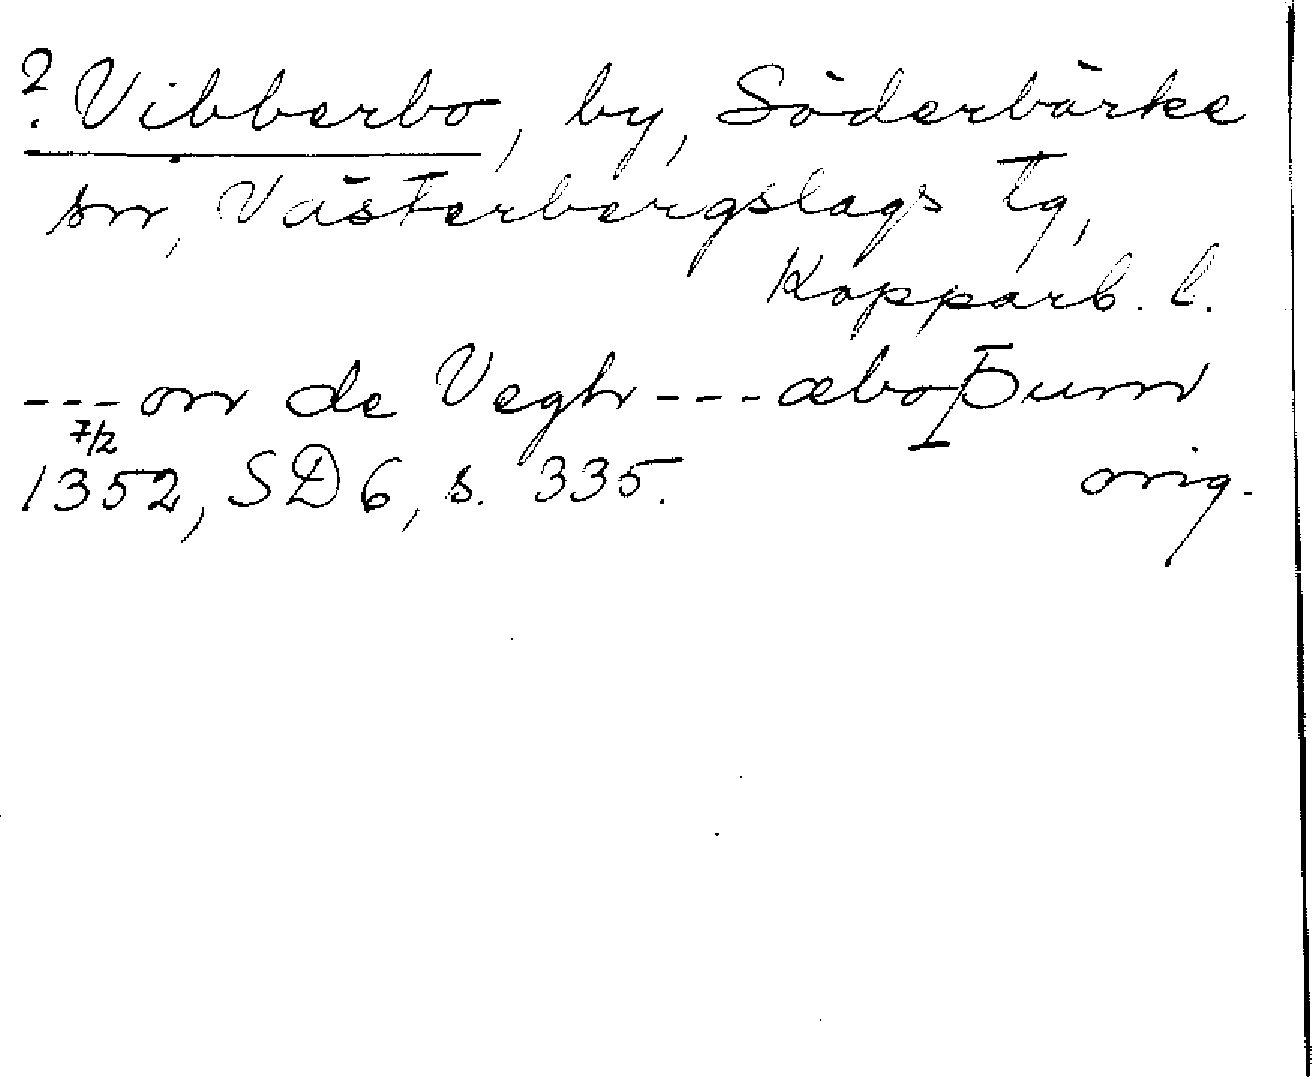 ? Vibberbo, by, Söderbärke
sn, Västerbergslags tg,
Kopparb. l.
--- on de Vegh --- æboþum
7/2
1352, SD 6, s. 335. orig.